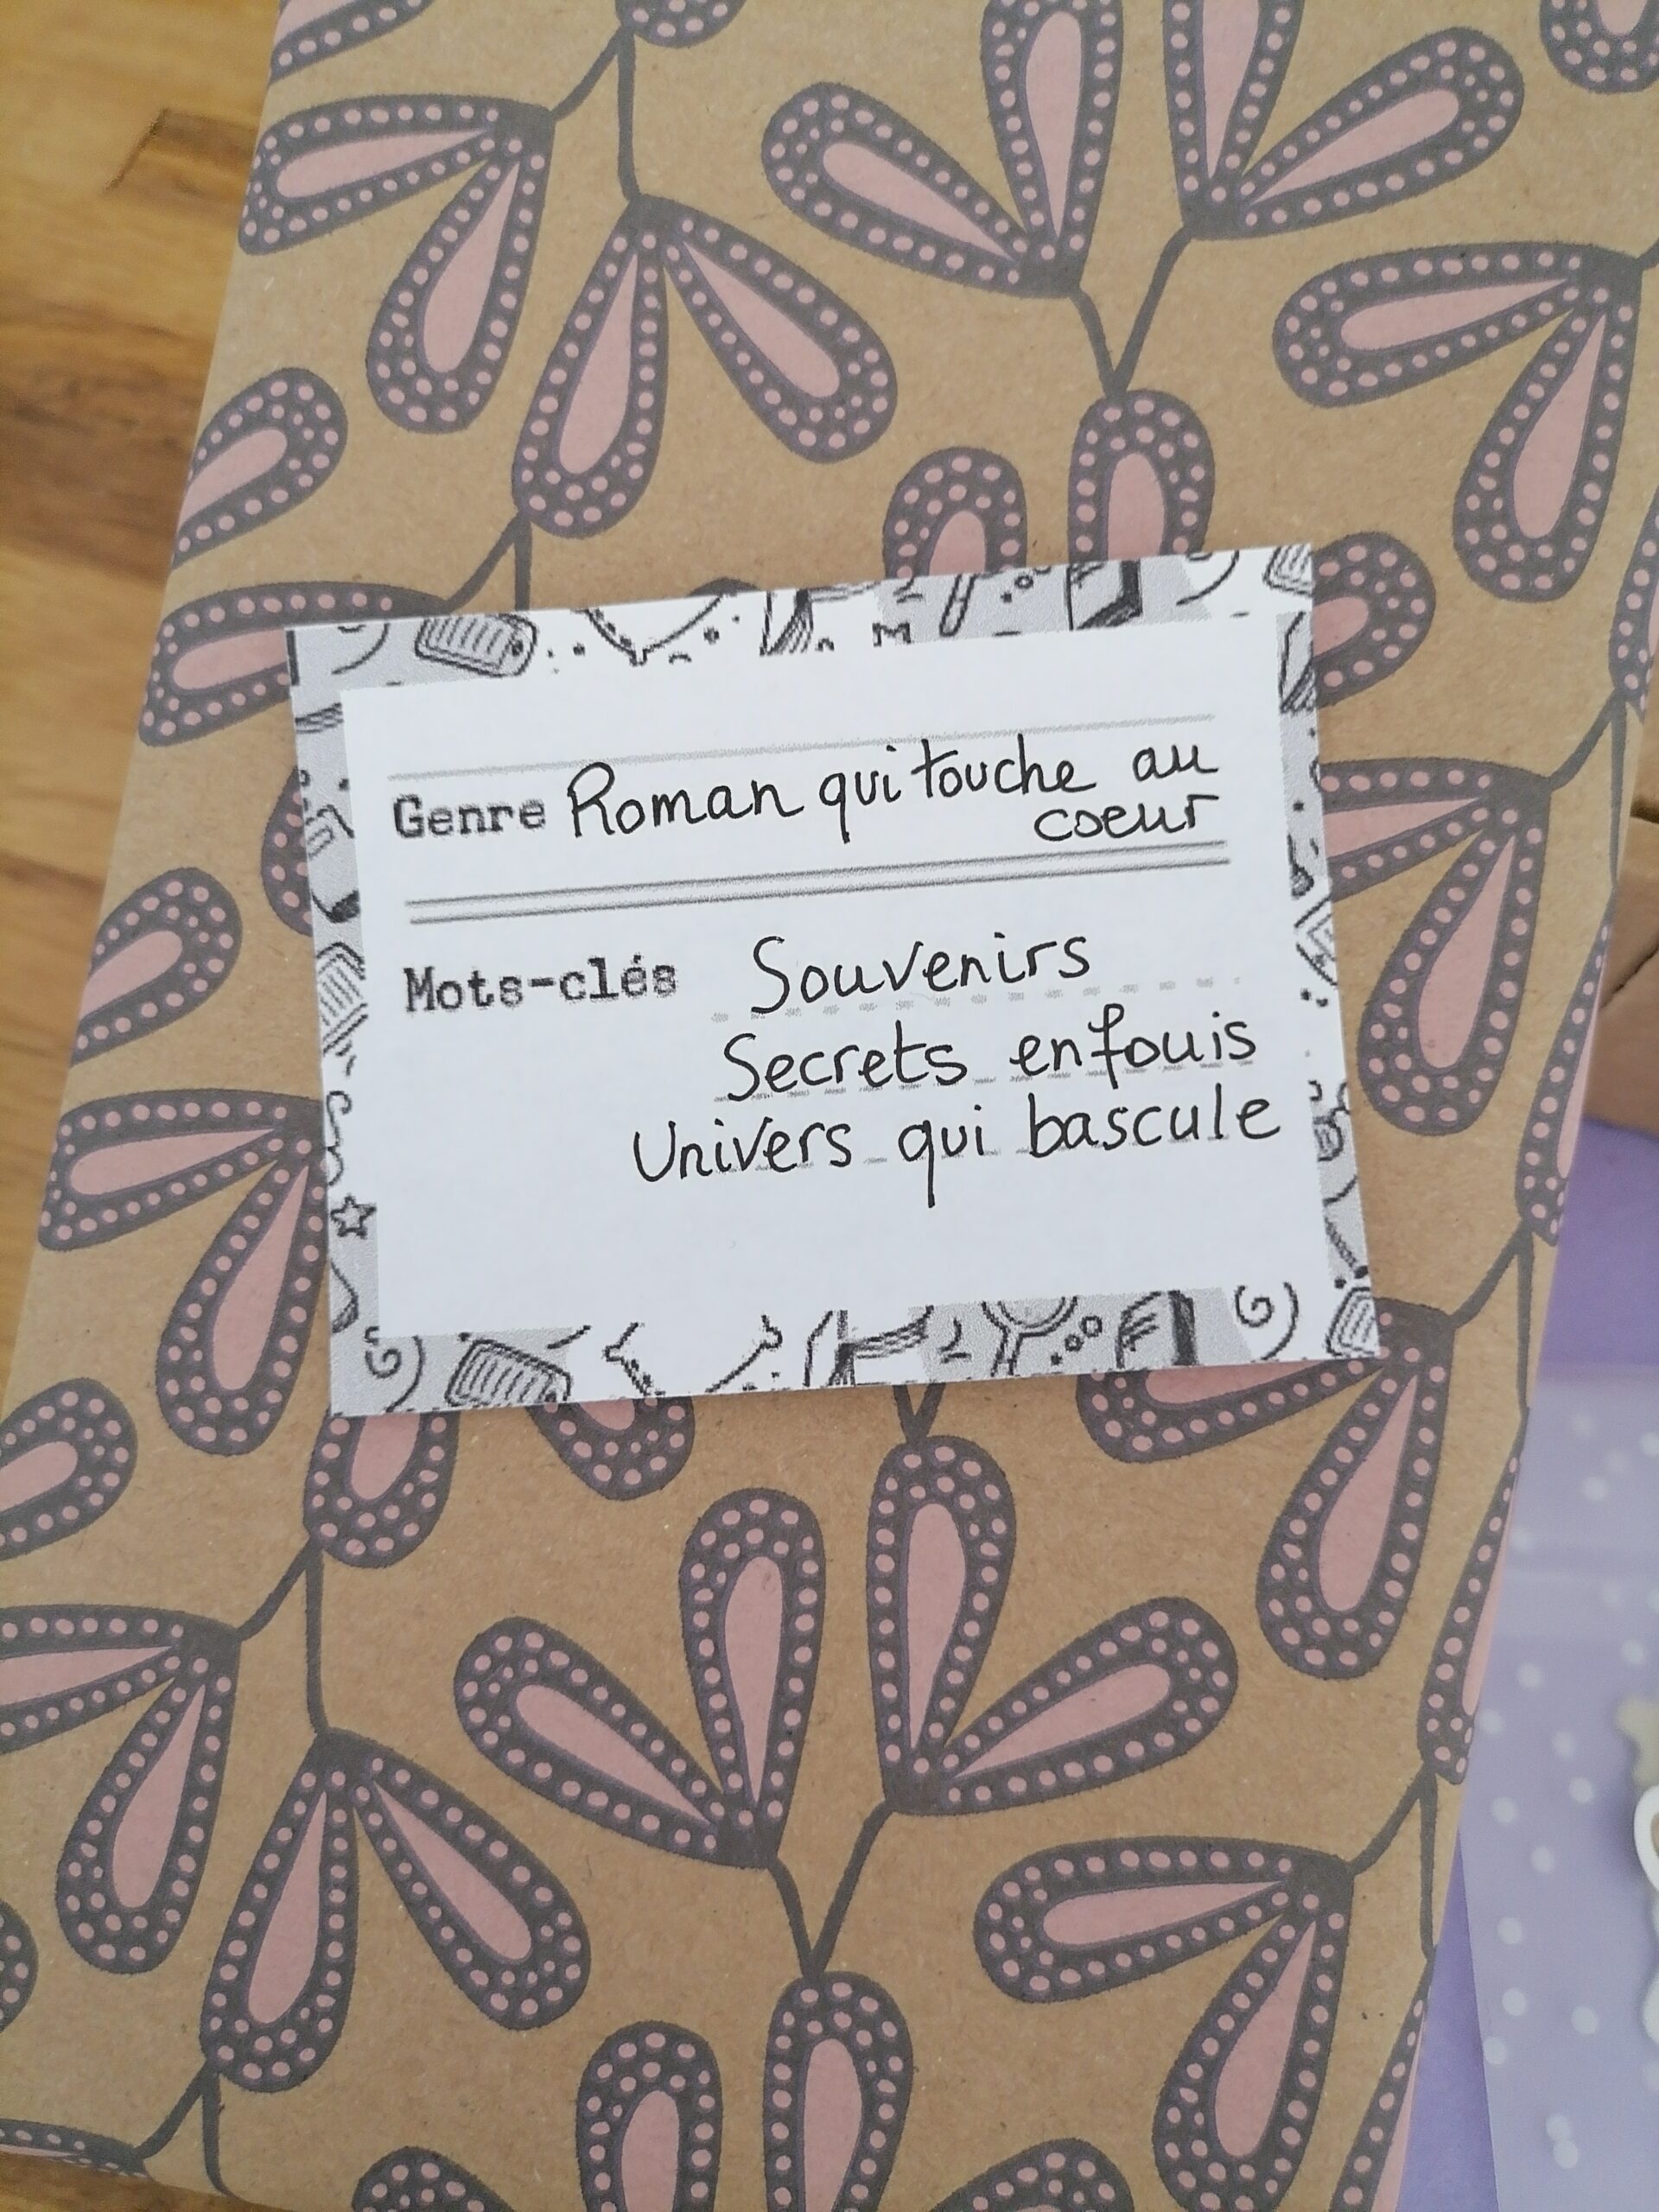 Genre Roman qui touche au
coeur
Mots-clés Souvenirs
Secrets enfouis
Univers qui bascule